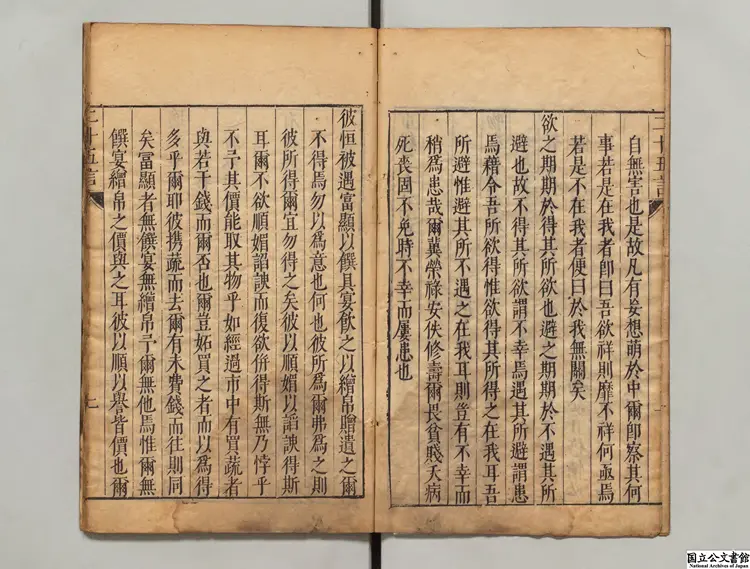 二十五言
自無害也是故凡有妄想萌於中爾卽察其何
事若是在我者卽曰吾欲祥則靡不祥何亟焉
若是不在我者便曰於我無關矣
欲之期期於得其所欲也避之期期於不遇其所
避也故不得其所欲謂不幸焉遇其所避謂患
焉藉令吾所欲得惟欲得其所得之在我耳吾
所避惟避其所不遇之在我耳則豈有不幸而
稍爲患哉爾冀榮祿安佚修壽爾畏貧賤夭病
死喪固不免時不幸而屢患也
彼恒被遇富顯以饌具宴飮之以繒帛贈遺之爾
不得焉勿以爲意也何也彼所爲爾弗爲之則
彼所得爾宜勿得之矣彼以順媚以謟諛得斯
耳爾不欲順媚謟諛而復欲倂得斯無乃悖乎
不亏其價能取其物乎如經過市中有買蔬者
與若干錢而爾否也爾豈妬買之者而以爲得
多乎爾耶彼携蔬而去爾有未費錢而往則同
矣富顯者無饌宴無繒帛亏爾無他焉惟爾無
饌宴繒帛之價與之耳彼以順以譽皆價也爾
二十五言
國立公文書館
National Archives of Japan